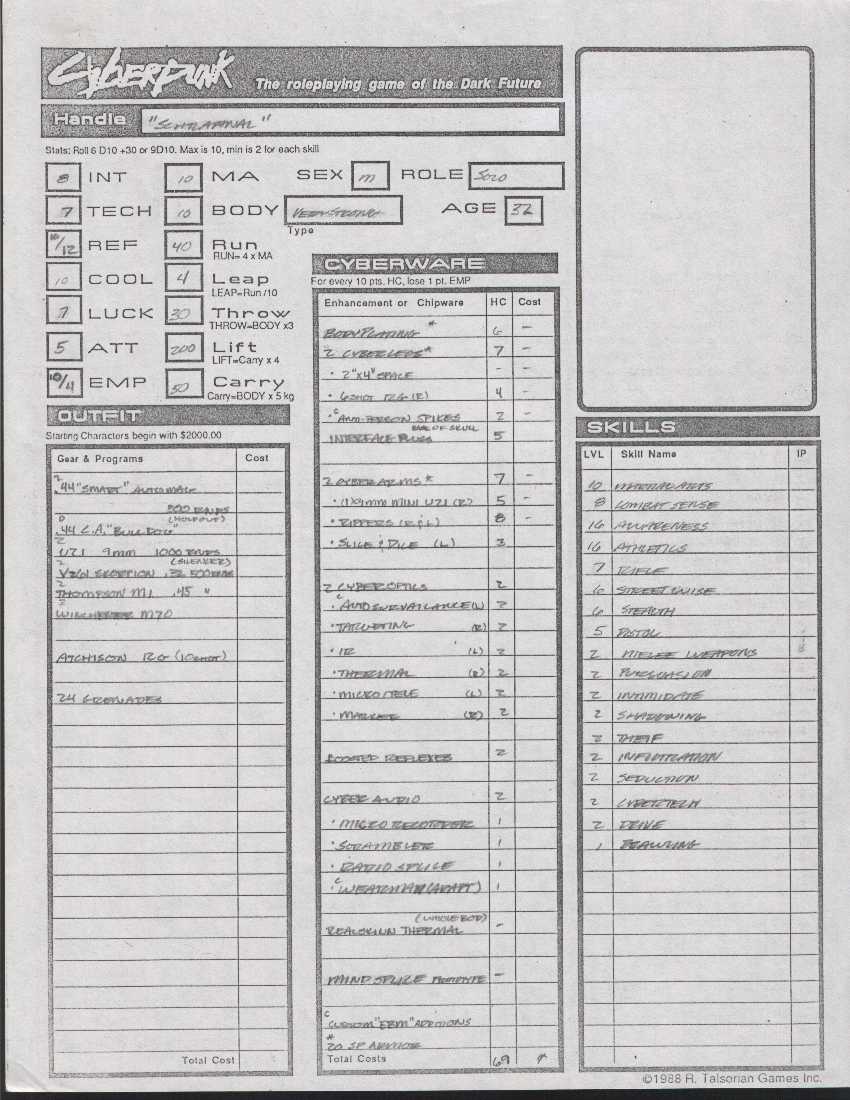 CYBERPUNK The roleplaying game of the Dark Future
Handle
Stats: Roll 6 D10 +30 or 9D10. Max is 10, min is 2 for each skill
8 INT 10 MA SEX m ROLE SOLO
7 TECH 10 BODY VERY STRONG AGE 32
Type
10/12 REF 40 Run
RUN= 4 x MA
10 COOL 4 Leap
LEAP=Run /10
7 LUCK 30 Throw
THROW=BODY x3
5 ATT 200 Lift
LIFT=Carry x 4
10/4 EMP 50 Carry
Carry=BODY x 5 kg
OUTFIT
Starting Characters begin with $2000.00
Gear & Programs Cost
.44 "SMART" AUTOMAG
500 RNDS
(HOLDOUT)
.44 C.A. "BULLDOG"
UZI 9mm 1000 RNDS
(SILENCER)
SKORPION .32 500 RNDS
THOMPSON M1 .45 "
WINCHESTER M70
ATCHISON 12G (10 SHOT)
24 GRENADES
Total Cost
CYBERWARE
For every 10 pts. HC, lose 1 pt. EMP
Enhancement or Chipware HC Cost
BODY PLATING * 6 -
2 CYBERLEGS * 7 -
• 2"x4" SPACE - -
• 6 SHOT 12G (R) 4 -
• C ANTI-PERSON SPIKES 2 -
BASE OF SKULL
INTERFACE PLUGS 5
2 CYBERARMS * 7 -
• (1) 9mm MINI UZI (R) 5 -
• RIPPERS (R&L) 8 -
• SLICE & DICE (L) 3
2 CYBEROPTICS 2
C
2
• TARGETING (R) 2
• IR (L) 2
• THERMAL (R) 2
• MICRO/TELE (L) 2
(R) 2
BOOSTED REFLEXES 2
CYBER AUDIO 2
• MICRO RECORDER 1
• SCRAMBLER 1
• RADIO SPLICE 1
C
• WEARMAN (ADAPT) 1
(WHOLE BOD)
REALSKINN THERMAL -
MIND SPLICE -
C
CUSTOM "EBM" ADDITIONS
*
20 SP ARMOR
Total Costs 69
SKILLS
LVL Skill Name IP
10 MARTIAL ARTS
8 COMBAT SENSE
16 AWARENESS
16 ATHLETICS
7 RIFLE
6 STREETWISE
6 STEALTH
5 PISTOL
2 MELEE WEAPONS
2 PURSUASION
2 INTIMIDATE
2 SHADOWING
2 THEIF
2 INFILTRATION
2 SEDUCTION
2 CYBERTECH
2 DRIVE
1 BRAWLING
©1988 R. Talsorian Games Inc.